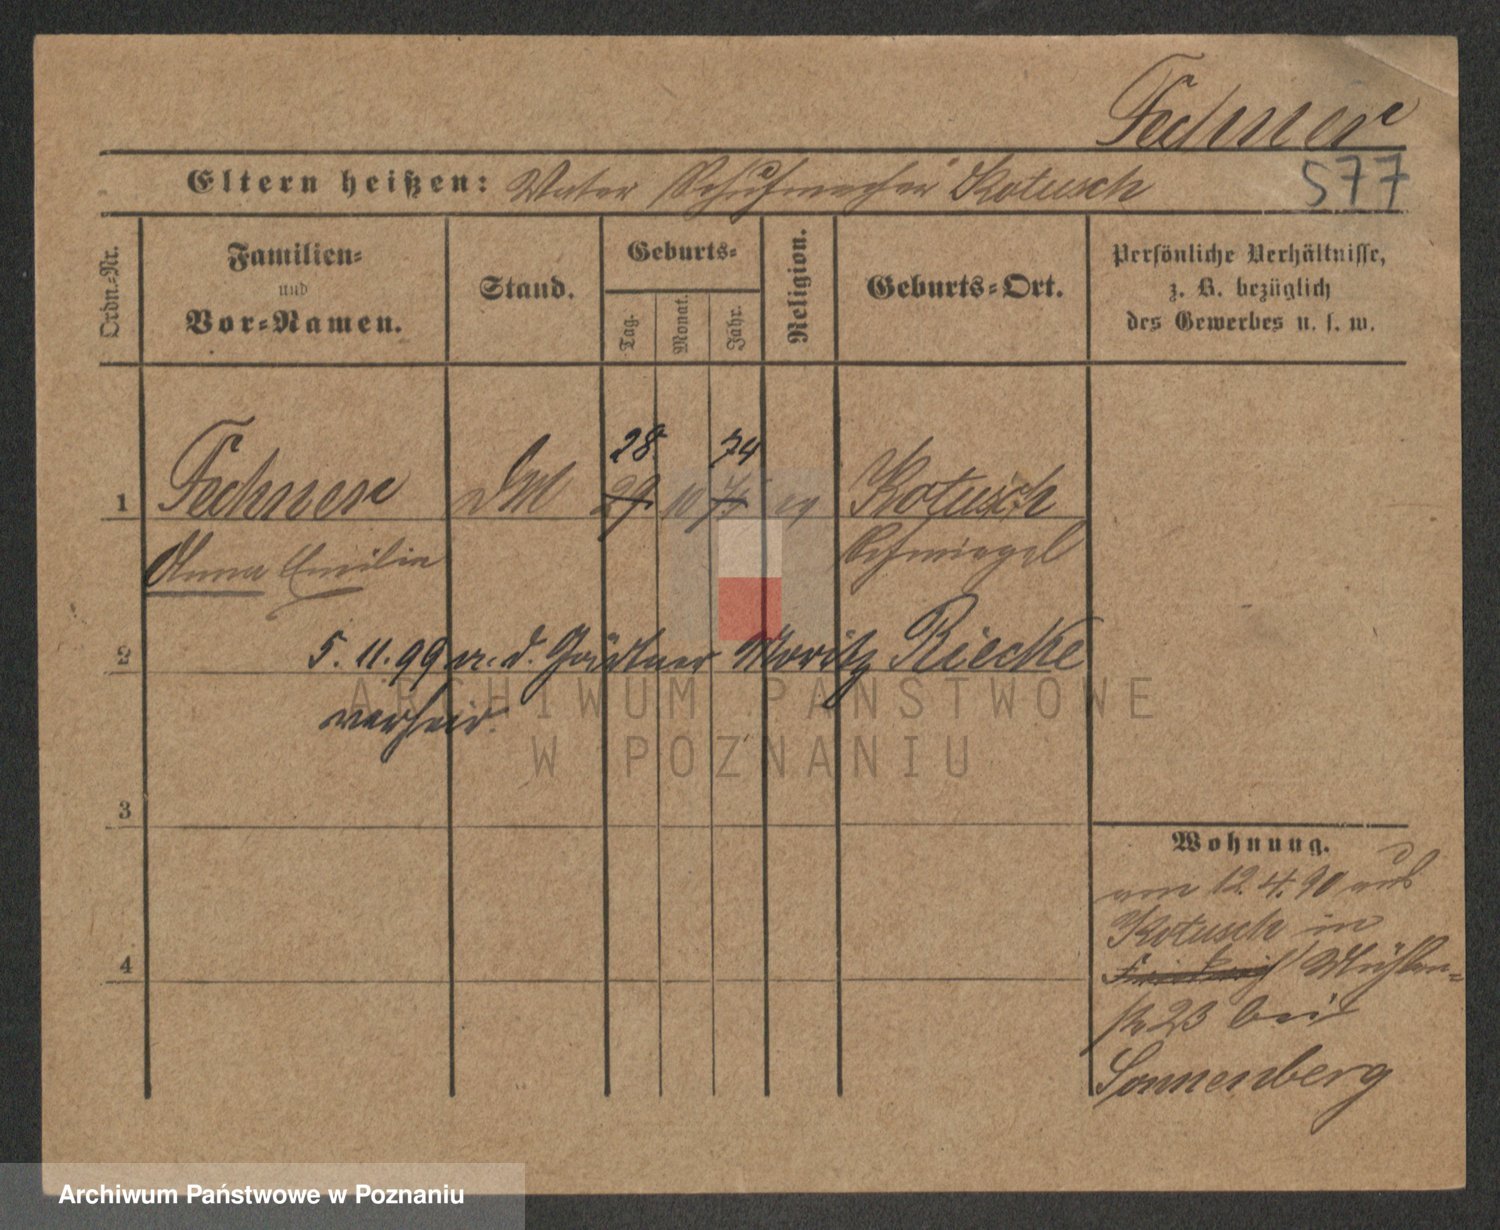 Fechner
Eltern heißen: Vater Schuhmacher Kotusch
577
Ordn.-Nr.
Familien-
und
Vor-Namen.
Stand.
Geburts-
Tag.
Monat.
Jahr.
Religion.
Geburts-Ort.
Persönliche Verhältnisse,
z. B. bezüglich
des Gewerbes u. s. w.
28 74
1 Fechner DM 29 10 75 ev Kotusch
Anna Emilie Schmiegel
2 5. 11. 99 m. d. Gärtner Moritz Riecke
verheir.
3
4
Wohnung.
am 12. 4. 90 aus
Kotusch in
Mühlen-
str 23 bei
Sonnenberg
ARCHIWUM PAŃSTWOWE
W POZNANIU
Archiwum Państwowe w Poznaniu